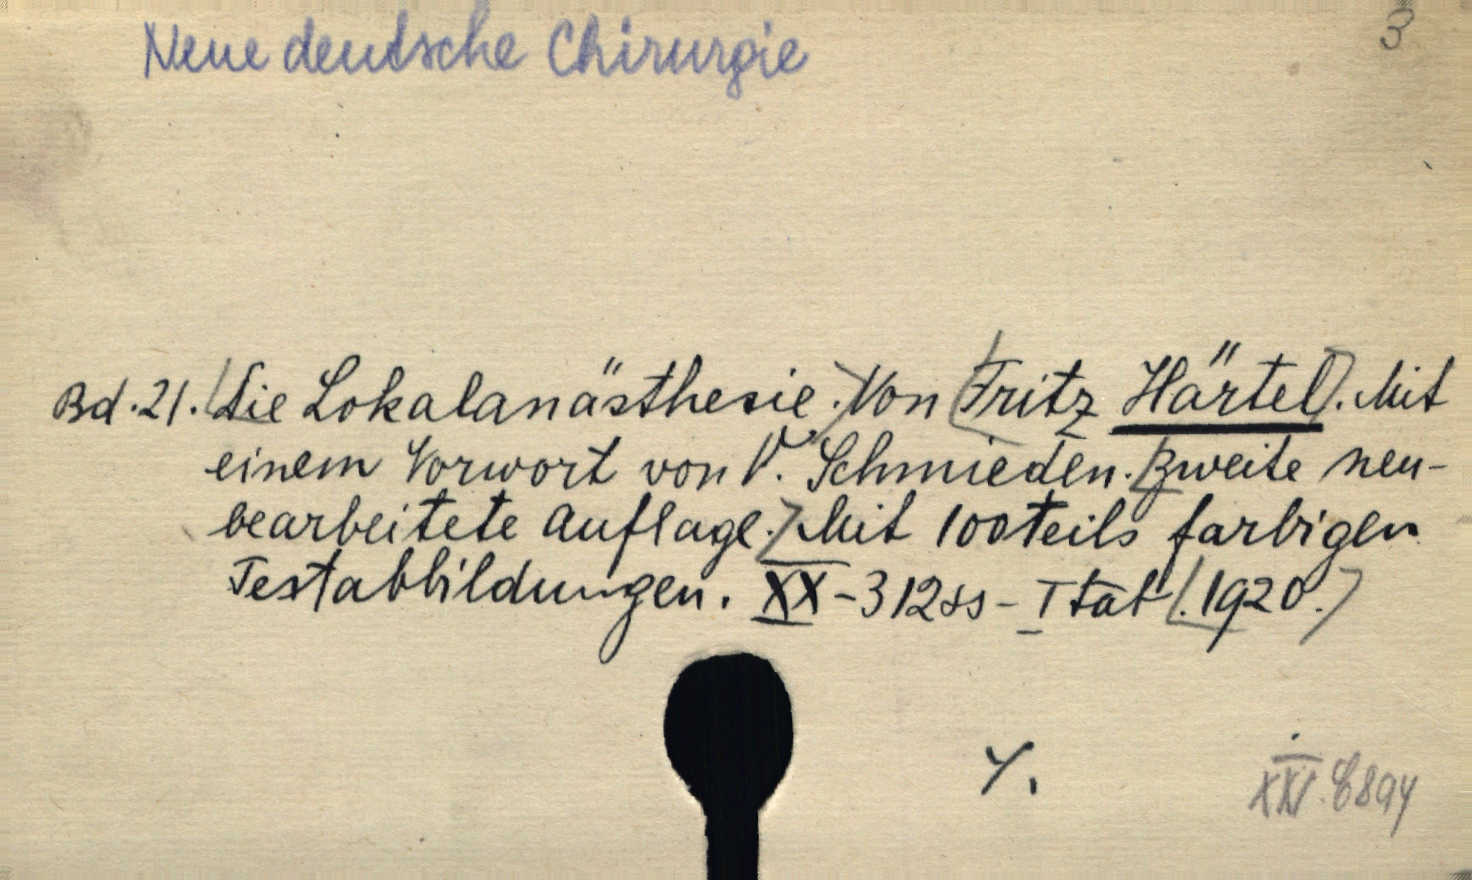 Neue deutsche Chirurgie
3
Bd. 21. Die Lokalanästhesie. Von Fritz Härtel. Mit
einem Vorwort von V. Schmieden. Zweite neu-
bearbeitete Auflage. Mit 100 teils farbigen
Textabbildungen. XX-312 ss - I tab. 1920.
Y.